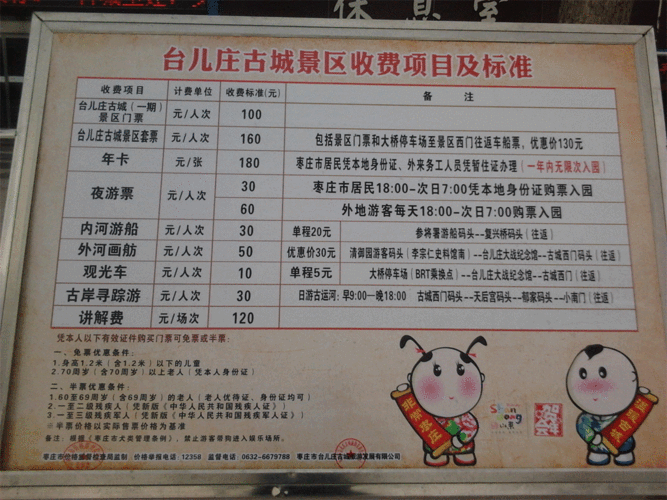 休息室
台儿庄古城景区收费项目及标准
收费项目 计费单位 收费标准(元) 备 注
台儿庄古城(一期)景区门票 元/人次 100
台儿庄古城景区套票 元/人次 160 包括景区门票和大桥停车场至景区西门往返车船票，优惠价130元
年卡 元/张 180 枣庄市居民凭本地身份证、外来务工人员凭暂住证办理(一年内无限次入园)
夜游票 元/人次 30 枣庄市居民18:00-次日7:00凭本地身份证购票入园
60 外地游客每天18:00-次日7:00购票入园
内河游船 元/人次 30 单程20元 参将署游船码头--复兴桥码头(往返)
外河画舫 元/人次 50 优惠价30元 清御园游客码头(李宗仁史料馆南)--台儿庄大战纪念馆--古城西门码头(往返)
观光车 元/人次 10 单程5元 大桥停车场(BRT乘换点)--台儿庄大战纪念馆--古城西门(往返)
古岸寻踪游 元/人次 30 日游古运河:早9:00—晚18:00 古城西门码头--天后宫码头--郁家码头--小南门(往返)
讲解费 元/场次 120
凭本人以下有效证件购买门票可免票或半票:
一、免票优惠条件:
1.身高1.2米(含1.2米)以下的儿童
2.70周岁(含70周岁)以上老人(凭本人身份证)
二、半票优惠条件:
1.60至69周岁(含69周岁)的老人(老人优待证、身份证均可)
2.一至二级残疾人(凭新版《中华人民共和国残疾人证》)
3.一至三级残疾军人(凭新版《中华人民共和国残疾军人证》)
※半票价格以实际售票价格为基准
备注:根据《枣庄市犬类管理条例》,禁止游客带狗进入娱乐场所。
枣庄市价格监督检查局监制 价格举报电话:12358 监督电话:0632-6679788 枣庄市台儿庄古城旅游发展有限公司